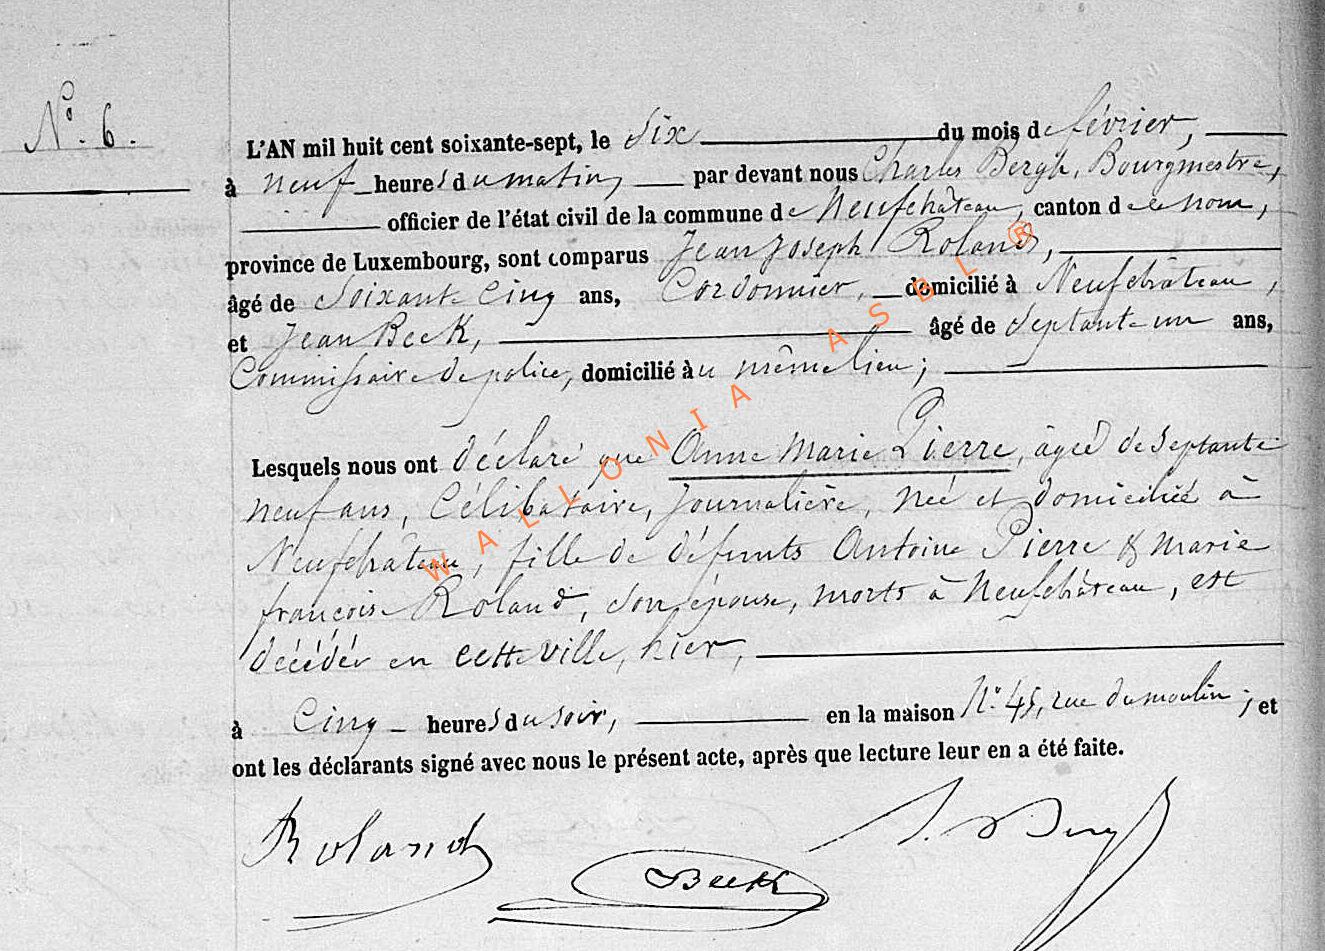 N° 6.
L'AN mil huit cent soixante-sept, le Six du mois de février,
à neuf heures du matin, par devant nous Charles Bergh, Bourgmestre,
officier de l'état civil de la commune de Neufchâteau, canton de ce nom,
province de Luxembourg, sont comparus Jean Joseph Roland,
âgé de Soixante Cinq ans, Cordonnier, domicilié à Neufchâteau,
et Jean Beck, âgé de Septante un ans,
Commissaire de police, domicilié au même lieu;
Lesquels nous ont déclaré que Anne Marie Pierre, âgée de Septante
neuf ans, Célibataire, Journalière, née et domiciliée à
Neufchâteau, fille de défunts Antoine Pierre & Marie
françoise Roland, son épouse, morts à Neufchâteau, est
décédée en cette ville, hier,
à Cinq heures du soir, en la maison N° 45, rue du moulin; et
ont les déclarants signé avec nous le présent acte, après que lecture leur en a été faite.
Roland
Beck
WALLONIA ASBL ®